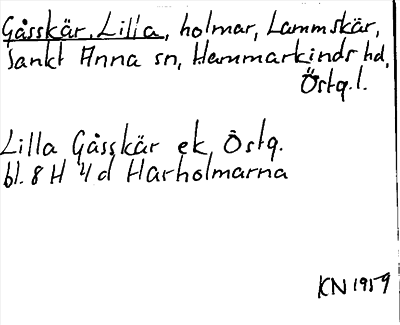 Gåsskär, Lilla, holmar, Lammskär,
Sankt Anna sn, Hammarkinds hd,
Östg.l.
Lilla Gåsskär ek, Östg.
bl. 8 H 4 d Harholmarna
KN 1959